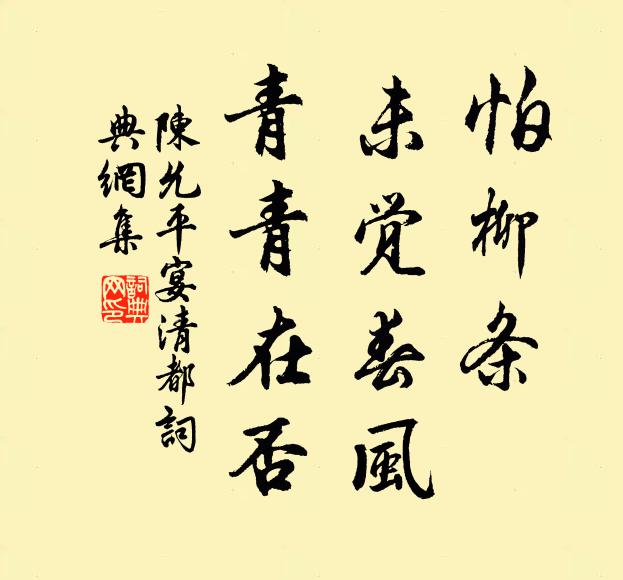 怕柳条
未觉春風
青青在否
陳允平宴清都詞
典網集
詞典
网印